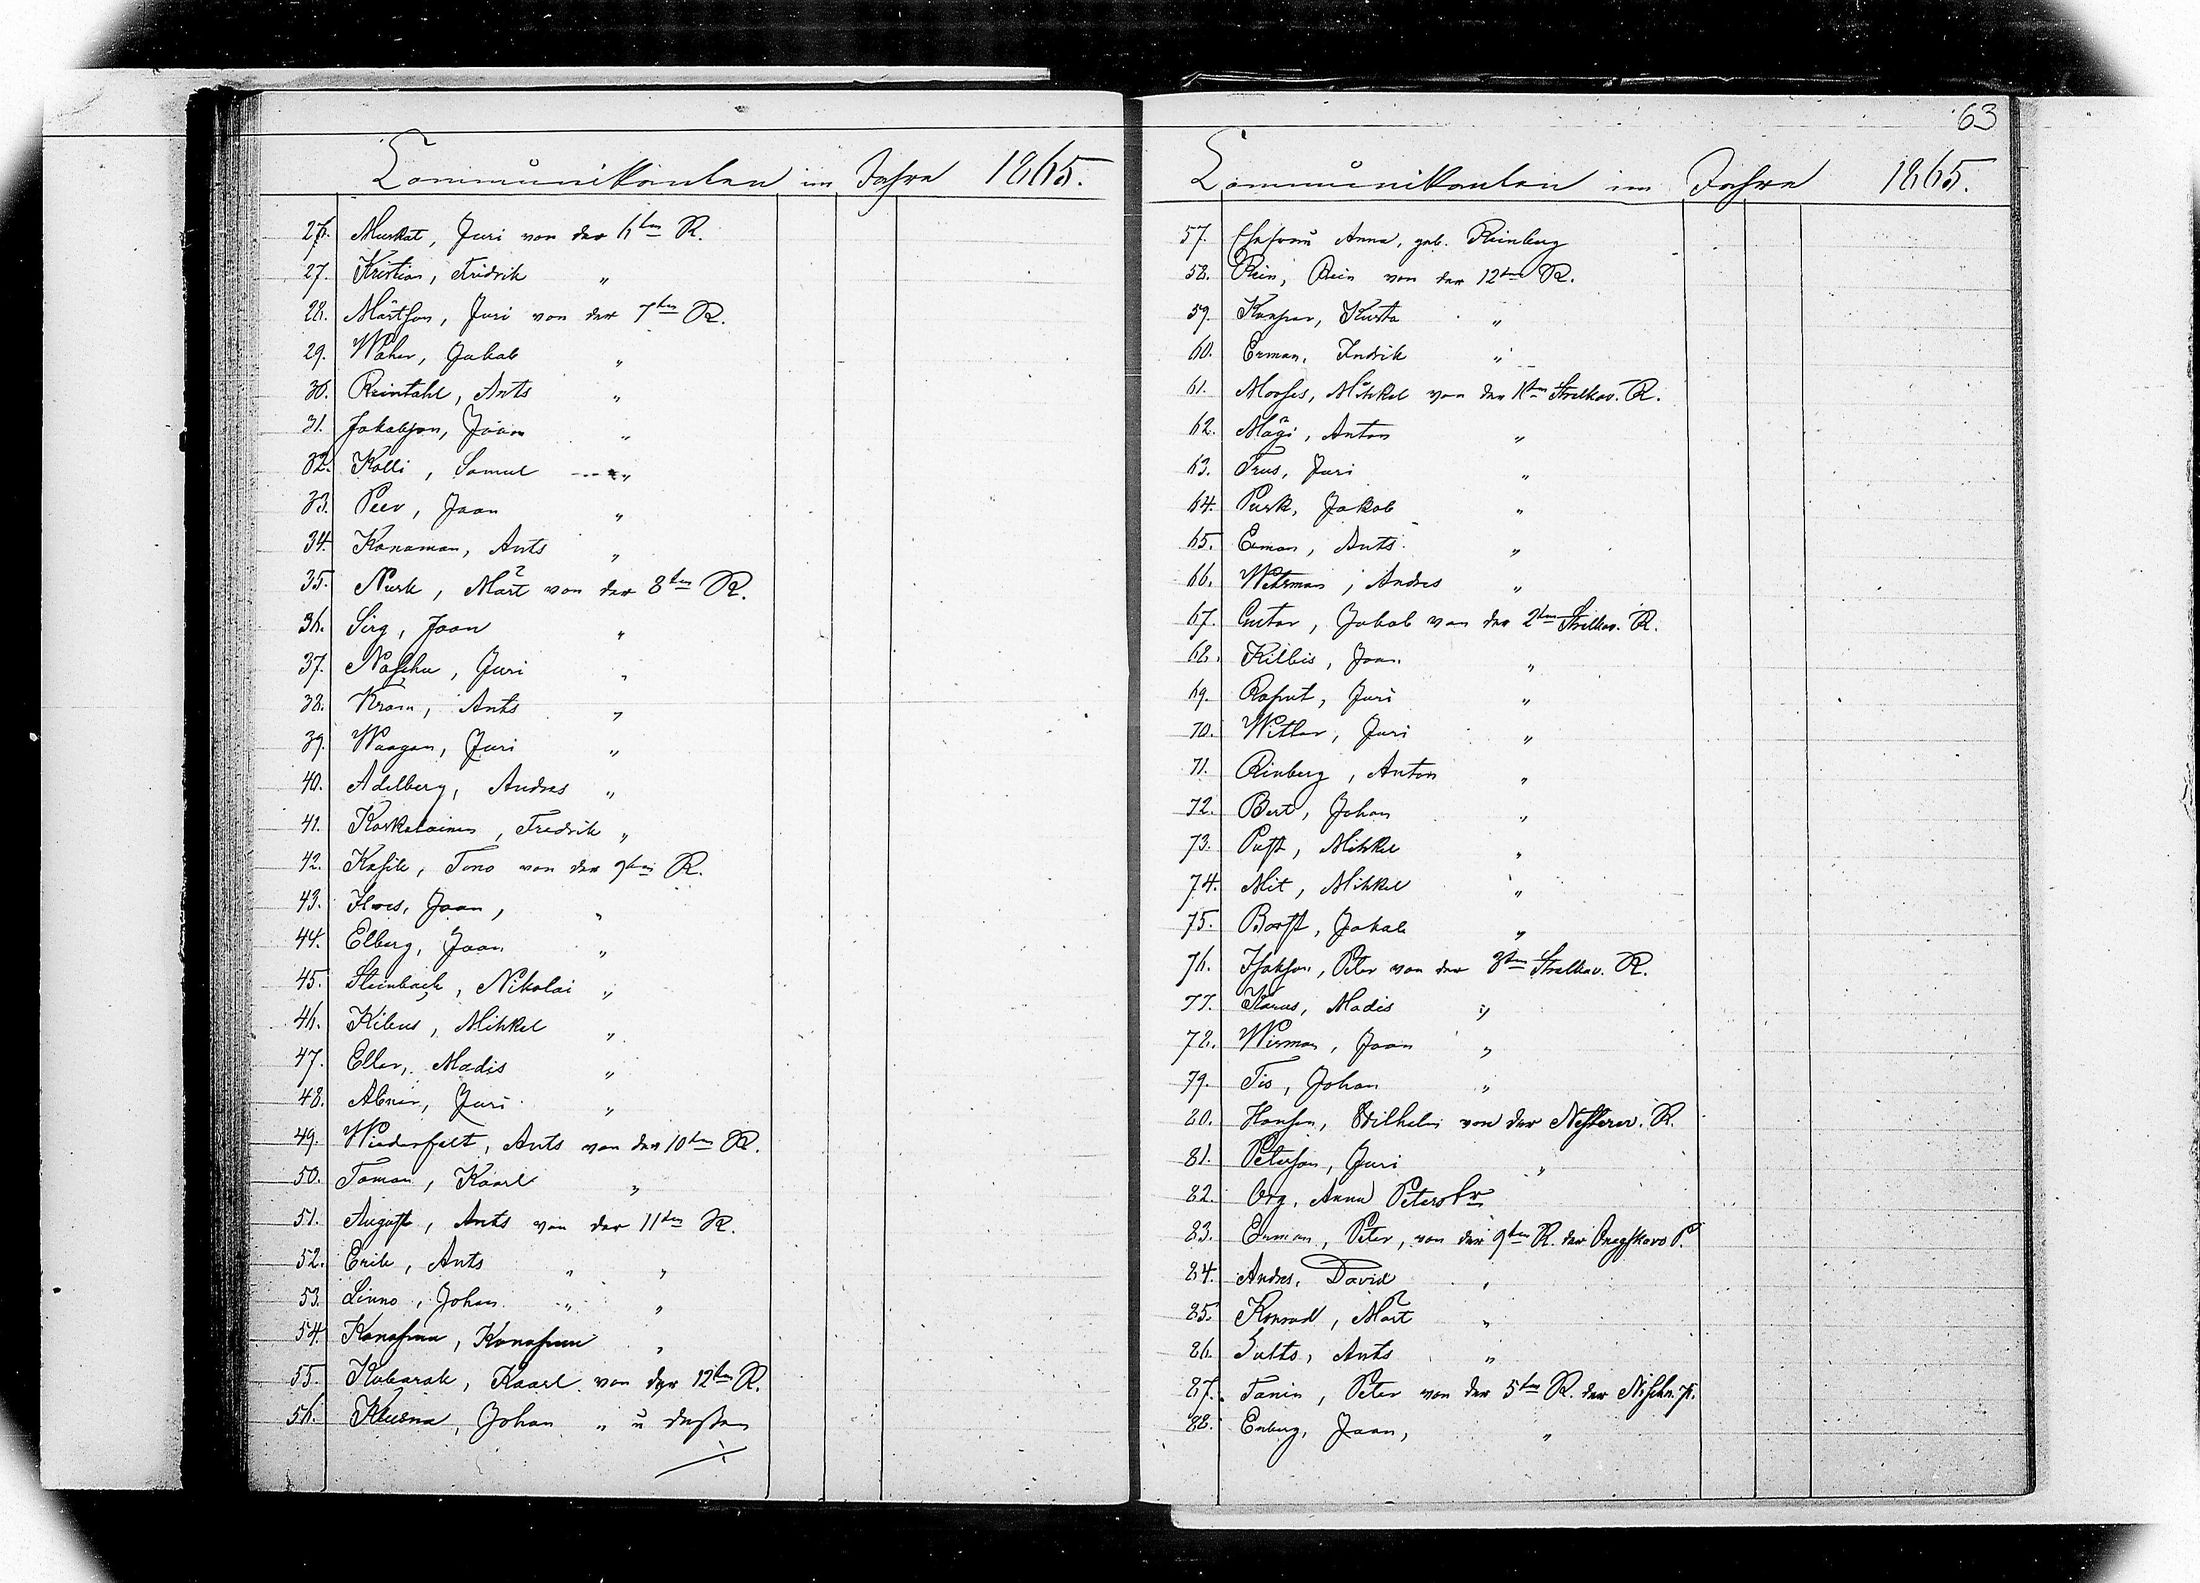 Communikanten im Jahre 1865.
26. Murkat, Juri von der 6ten R.
27. Kristian, Fridrik "
28. Märtson, Juri von der 7ten R.
29. Waher, Jakob "
30. Reintahl, Ants "
31. Jakobson, Jaan "
32. Kolli, Samul "
33. Peev, Jaan "
34. Kanaman, Ants "
35. Nurk, Märt von der 8ten R.
36. Sirg, Jaan "
37. Juri "
38. Kram, Ants "
39. Waagan, Juri "
40. Adelberg, Andres "
41. Koskelainen, Fredrik "
42. Kasik, Tono von der 9ten R.
43. Ilves, Jaan, "
44. Elberg, Jaan "
45. Steinbach, Nikolai "
46. Kileus, Mihkel "
47. Eller, Madis "
48. Abner, Juri "
49. Wiederfelt, Ants von der 10ten R.
50. Toman, Kaarl "
51. August, Ants von der 11ten R.
52. Erik, Ants " "
53. Linno, Johan " "
54. "
55. Kobarak, Kaarl von der 12ten R.
56. Johan " u dessen
63
Communikanten im Jahre 1865.
57. Ehefrau Anna, geb. Reinberg
58. Rein, Rein von der 12ten R.
59. Kaspar, Kusta "
60. Erman, Indrik "
61. Mooses, Mihkel von der 1ten Strelkow. R.
62. Mägi, Anton "
63. Trus, Juri "
64. Pusk, Jakob "
65. Erman, Ants "
66. Wehrman, Andres "
67. Gustav, Jakob von der 2ten Strelkow. R.
68. Kilbis, Jaan "
69. Juri "
70. Witlar, Juri "
71. Rinberg, Anton "
72. Bert, Johan "
73. Pust, Mihkel "
74. Mit, Mihkel "
75. Borst, Jakob "
76. Isakson, Peter von der 3ten Strelkow. R.
77. Madis "
78. Wirman, Jaan "
79. Tio, Johan "
80. Hansen, Wilhelm von der R.
81. Peterson, Juri "
82. Org, Anna Peters
83. Peter, von der 9ten R. der P.
84. Andres, David "
85. Konrad, Märt "
86. Salts, Ants "
87. Tanin, Peter von der 5ten R. der
88. Enberg, Jaan, "